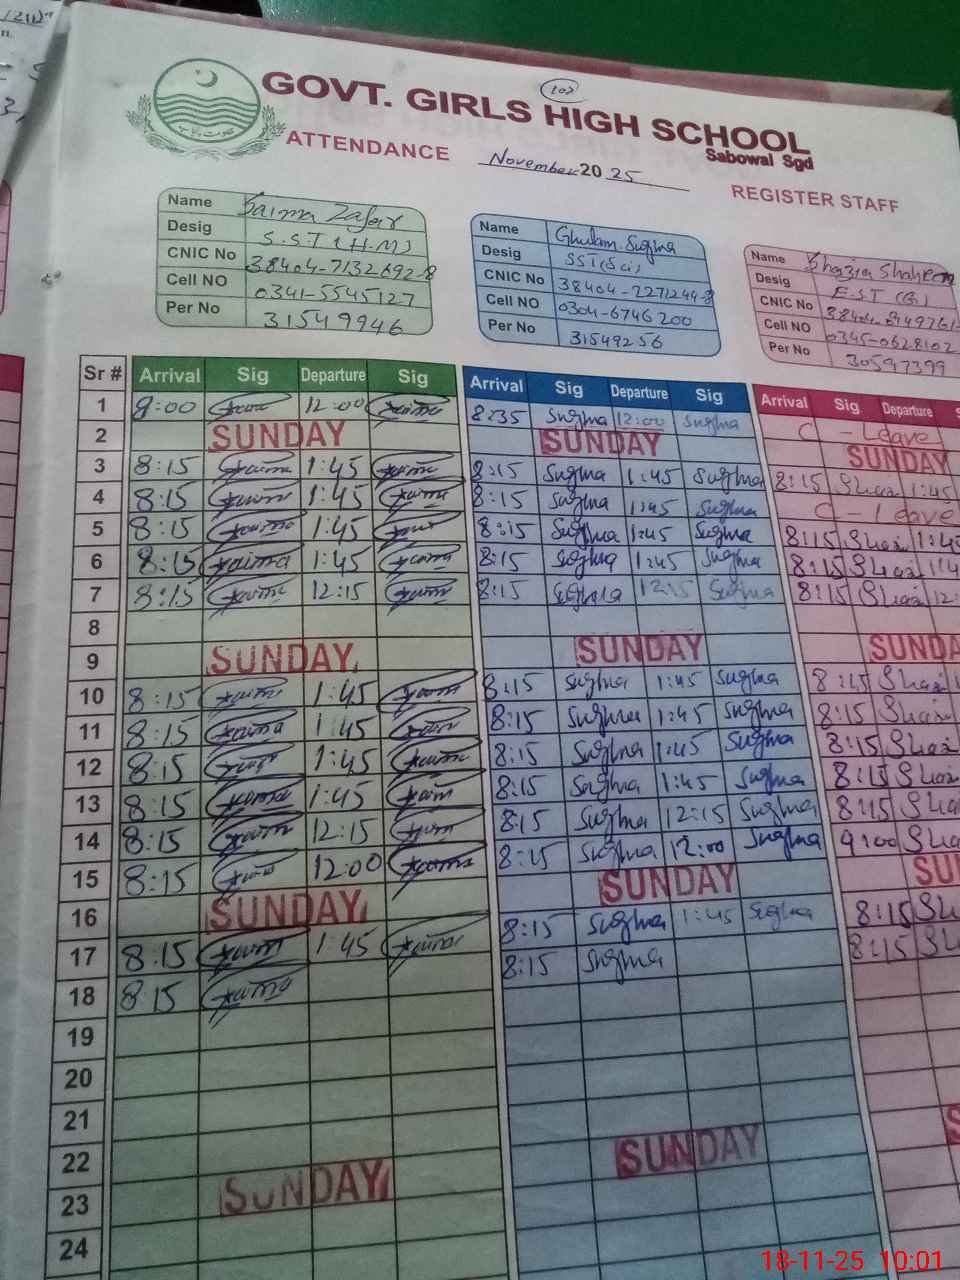 GOVT. GIRLS HIGH SCHOOL
Sabowal Sgd
ATTENDANCE November 2025
REGISTER STAFF
Name Saima Zafar
Desig S.S.T (H.M)
CNIC No 38404-7132692-8
Cell NO 0341-5545127
Per No 31549946
Name Ghulam Sughra
Desig SST(Sci)
CNIC No 38404-2271244-8
Cell NO 0304-6746200
Per No 31549256
Name Shazia Shaheen
Desig E.S.T (G)
CNIC No
Cell NO 0345-0628102
Per No 30597399
Sr # Arrival Sig Departure Sig Arrival Sig Departure Sig Arrival Sig Departure
1 9:00 Saima 12:00 Saima 8:35 Sughra 12:00 Sughra C - Leave
2 SUNDAY SUNDAY SUNDAY
3 8:15 Saima 1:45 Saima 8:15 Sughra 1:45 Sughra 8:15 Shaz 1:45
4 8:15 Saima 1:45 Saima 8:15 Sughra 1:45 Sughra C - Leave
5 8:15 Saima 1:45 Saima 8:15 Sughra 1:45 Sughra 8:15 Shaz 1:45
6 8:15 Saima 1:45 Saima 8:15 Sughra 1:45 Sughra 8:15 Shaz
7 8:15 Saima 12:15 Saima 8:15 Sughra 12:15 Sughra 8:15 Shaz
8
9 SUNDAY SUNDAY SUNDA
10 8:15 Saima 1:45 Saima 8:15 Sughra 1:45 Sughra 8:15 Shaz
11 8:15 Saima 1:45 Saima 8:15 Sughra 1:45 Sughra 8:15 Shaz
12 8:15 Saima 1:45 Saima 8:15 Sughra 1:45 Sughra 8:15 Shaz
13 8:15 Saima 1:45 Saima 8:15 Sughra 1:45 Sughra 8:15 Shaz
14 8:15 Saima 12:15 Saima 8:15 Sughra 12:15 Sughra 8:15 Sha
15 8:15 Saima 12:00 Saima 8:15 Sughra 12:00 Sughra 9:00 Sha
16 SUNDAY SUNDAY SU
17 8:15 Saima 1:45 Saima 8:15 Sughra 1:45 Sughra 8:15 Sh
18 8:15 Saima 8:15 Sughra 8:15 Sh
19
20
21
22
23 SUNDAY SUNDAY S
24
18-11-25 10:01